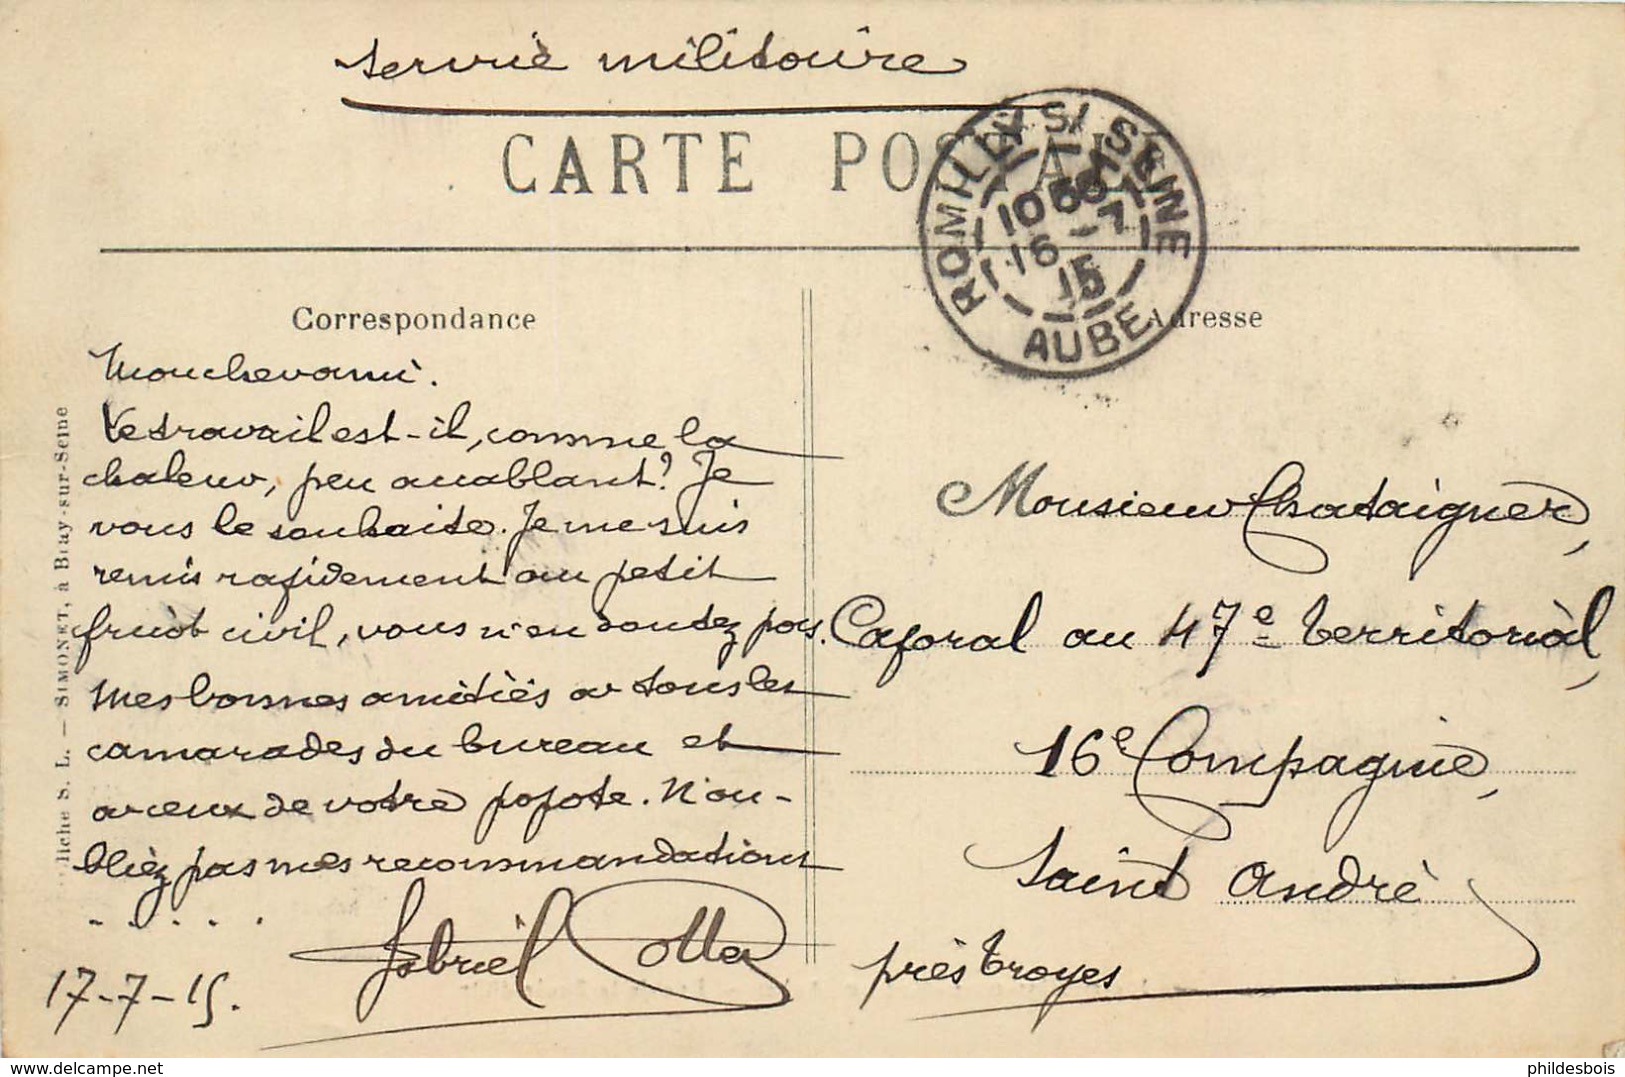 Service militaire
CARTE POSTALE
ROMILLY S/ SEINE
10
16 - 7
15
AUBE
Correspondance
Adresse
Mon cher ami.
Le travail est-il, comme la
chaleur, peu accablant? Je
vous le souhaite. Je me suis
remis rapidement au petit
fricot civil, vous n'en doutez pas.
Mes bonnes amitiés à tous les
camarades du bureau et
à ceux de votre popote. N'ou-
bliez pas mes recommandations
. . . . .
Gabriel
17-7-15.
Monsieur Chataigner,
Caporal au 47e territorial,
16e Compagnie,
Saint André
près Troyes
Cliché S. L. — SIMONET, à Bray-sur-Seine
phildesbois